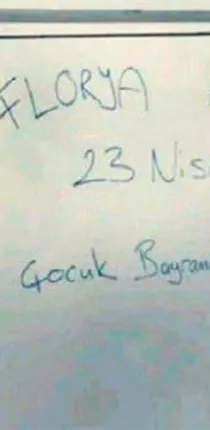 FLORYA
23 Nis
Çocuk Bayram